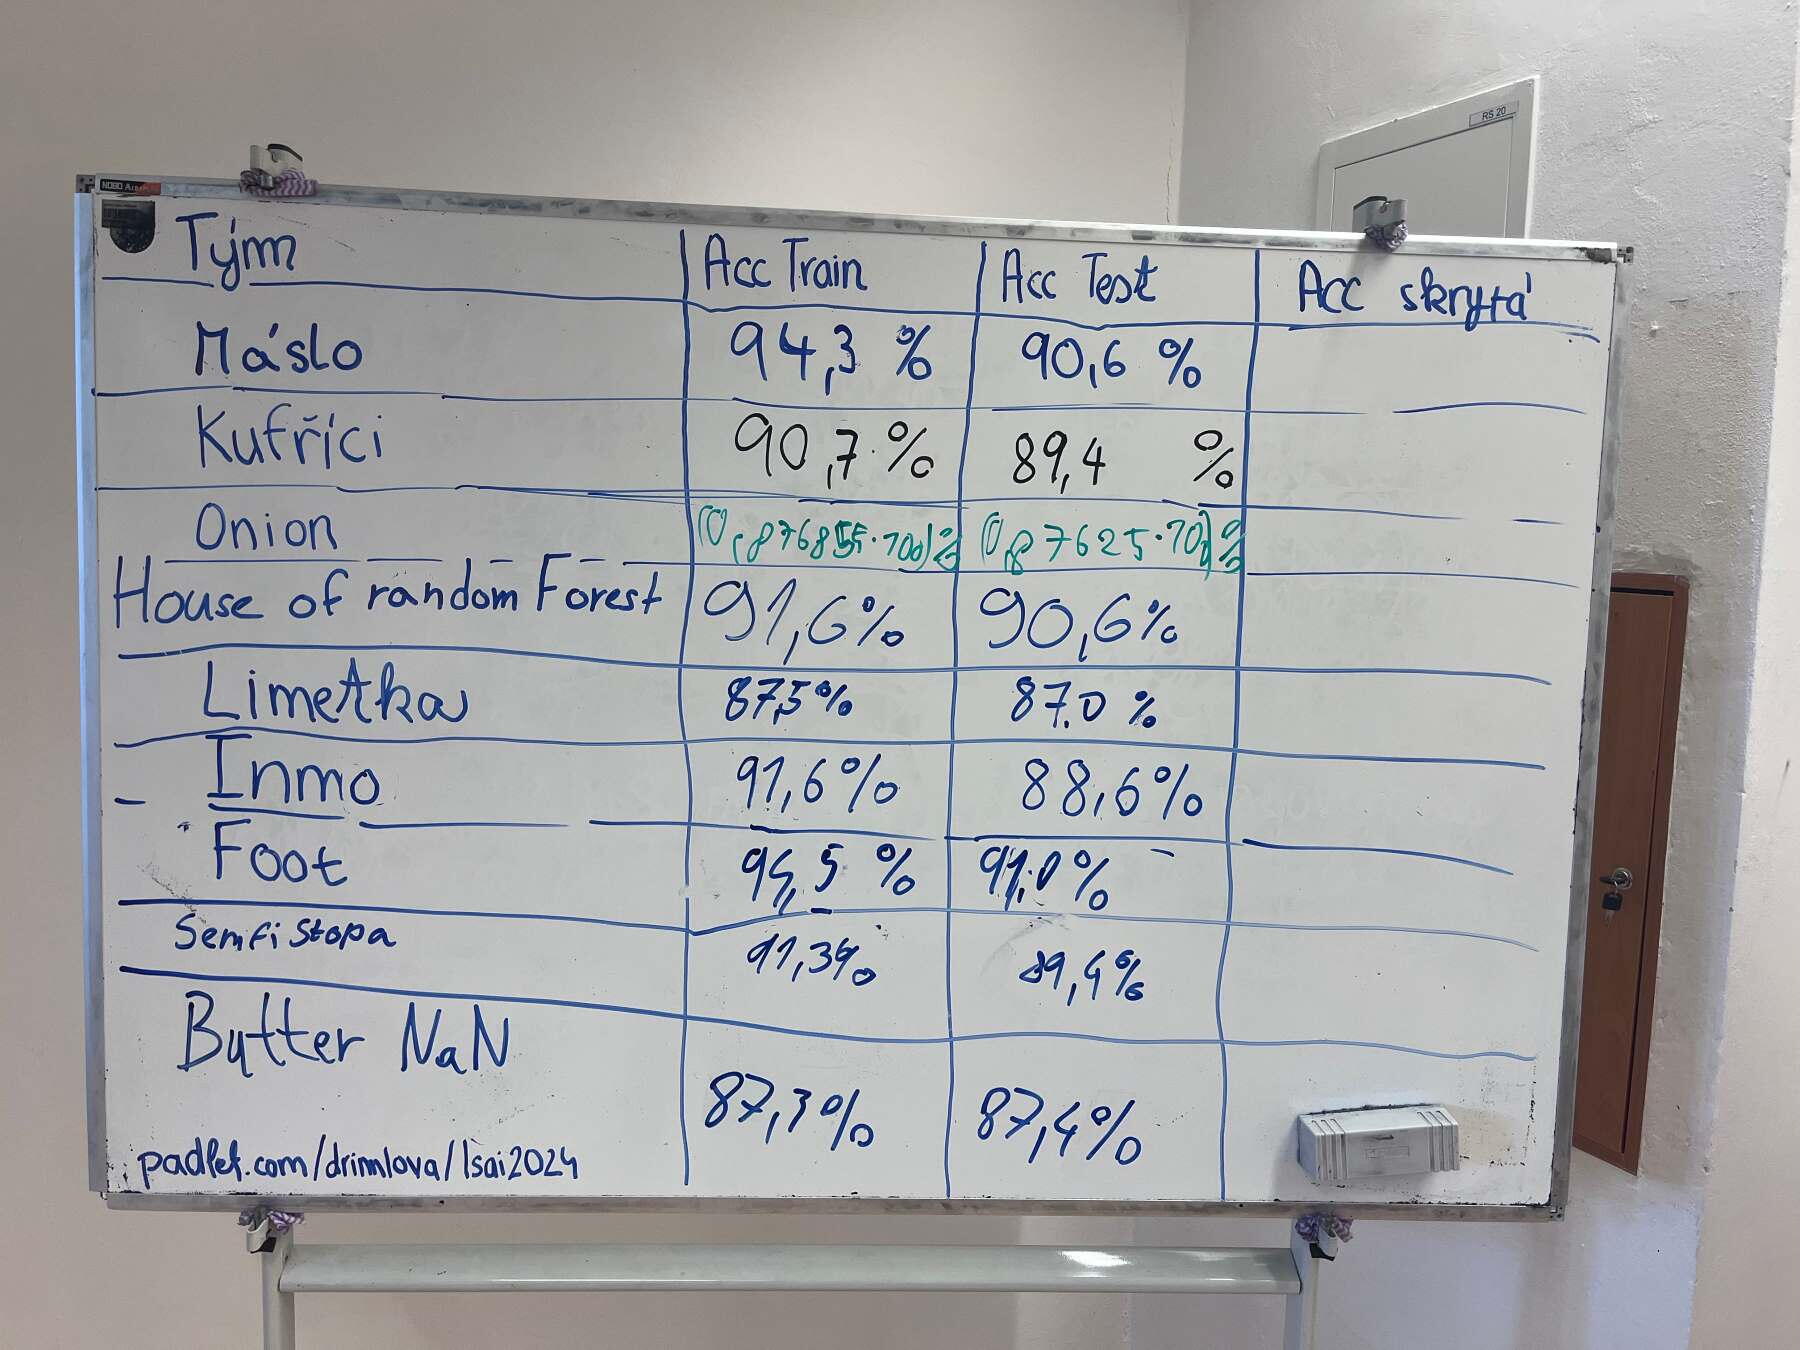 RS 20
NOBO
Tým Acc Train Acc Test Acc skrytá
Máslo 94,3 % 90,6 %
Kufříci 90,7 % 89,4 %
Onion (0,876855·100)% (0,87625·100)%
House of random Forest 91,6% 90,6%
Limetka 87,5% 87.0 %
Inmo 91,6% 88,6%
Foot 94,5 % 91,0%
Semfistopa 91,3% 89,4%
Butter NaN
87,3% 87,4%
padlet.com/drimlova/lsai2024